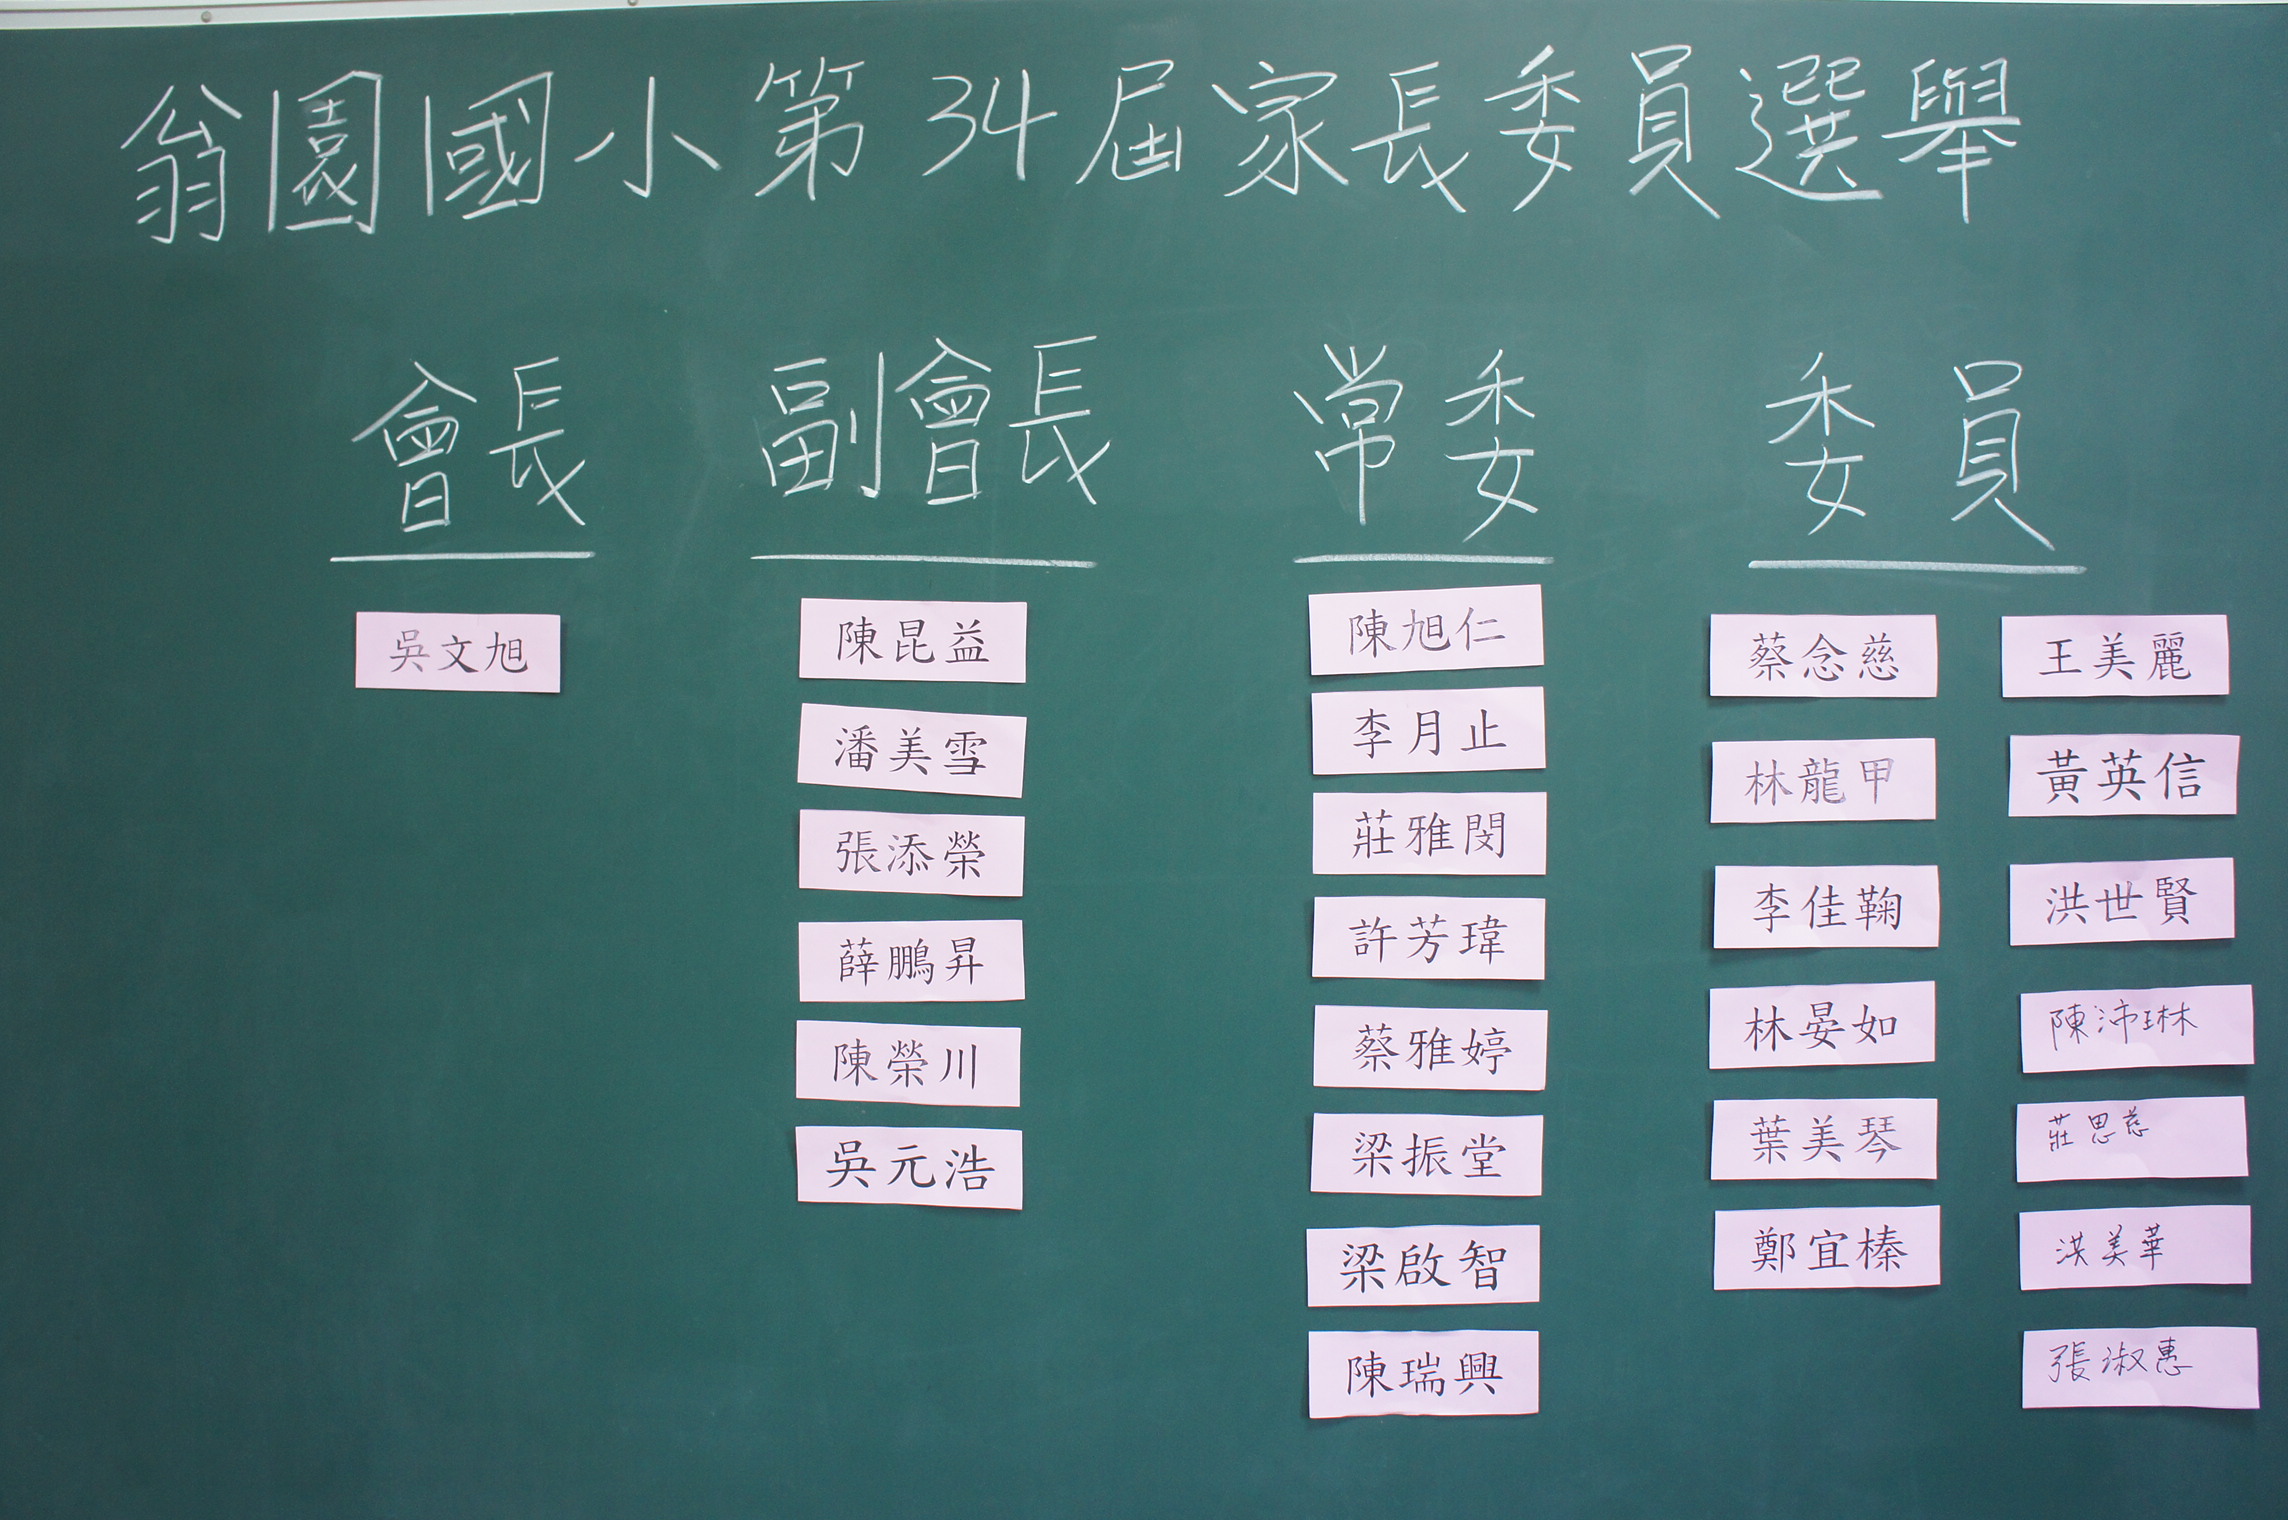 翁園國小第34屆家長委員選舉
會長
吳文旭
副會長
陳昆益
潘美雪
張添榮
薛鵬昇
陳榮川
吳元浩
常委
陳旭仁
李月止
莊雅閔
許芳瑋
蔡雅婷
梁振堂
梁啟智
陳瑞興
委員
蔡念慈
林龍甲
李佳鞠
林晏如
葉美琴
鄭宜榛
王美麗
黃英信
洪世賢
陳沛琳
莊思慈
洪美華
張淑惠